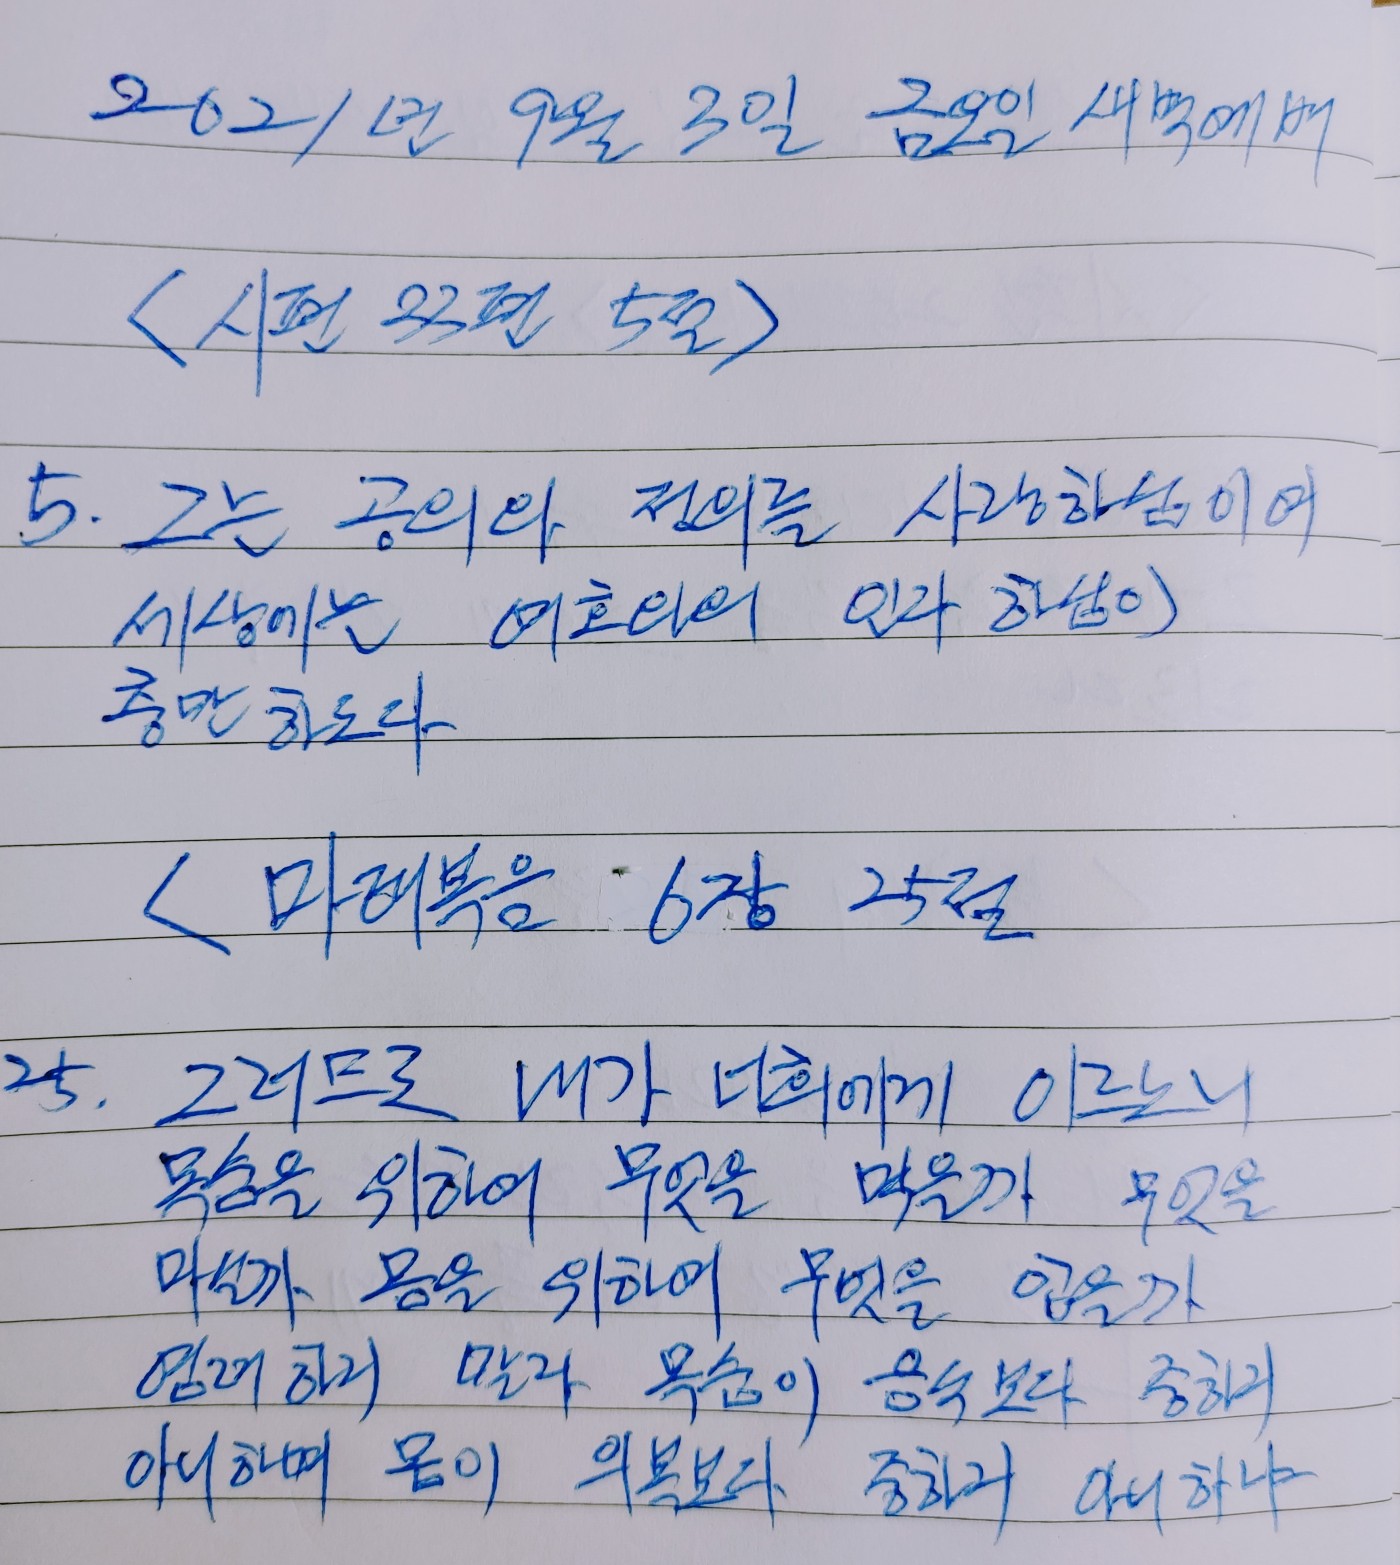 2021년 9월 3일 금요일 새벽예배
<시편 33편 5절>
5. 그는 공의와 정의를 사랑하심이여
세상에는 여호와의 인자하심이
충만하도다
<마태복음 6장 25절
25. 그러므로 내가 너희에게 이르노니
목숨을 위하여 무엇을 먹을까 무엇을
마실까 몸을 위하여 무엇을 입을까
염려하지 말라 목숨이 음식보다 중하지
아니하며 몸이 의복보다 중하지 아니하냐